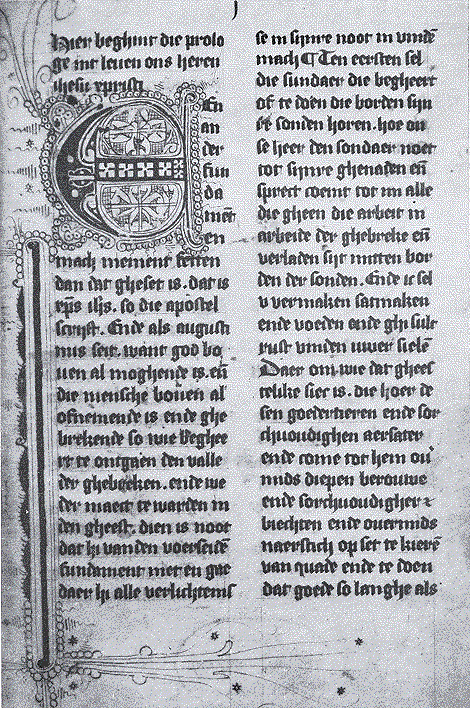 Hier beghint die prolo
ge int leuen ons heren
ihesu xpristi
En
an
der
fun
da
mēt
en
mach niement setten
dan dat gheset is. dat is
xp̄s ih̄s. so die apostel
scrijft. Ende als augusti
nus seit. want god bo
uen al moghende is. eñ
die mensche bouen al
ofnemende is ende ghe
brekende so wie beghee
rt te ontgaen den valle
der ghebreken. ende we
der maect te warden in
den gheest. dien is noot
dat hi vanden voerseidē
fundament niet en gae
daer hi alle
se in sijnre noot in vindē
mach Ten eersten sel
die sundaer die begheert
of te doen die borden sijn
re sonden horen. hoe on
se heer den sondaer noet
tot sijnre ghenaden eñ
sprect coemt tot mi alle
die gheen die arbeit in
arbeide der ghebreke eñ
verladen sijt mitten bor
den der sonden. Ende ic sel
v vermaken satmaken
ende voeden ende ghi sult
rust vinden uwer sielē
Daer om wie dat ghees
telike siec is. die hoer de
sen goedertieren ende sor
chuoudighen aersater
ende come tot hem ou
mids diepen berouwe
ende sorchuoudigher
biechten ende ouermids
naerstich op set te kierē
van quade ende te doen
dat goede so langhe als